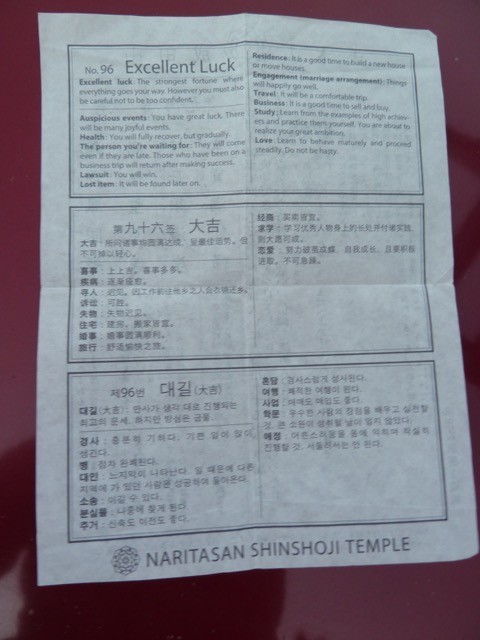 No. 96 Excellent Luck
Excellent luck: The strongest fortune where
everything goes your way. However you must also
be careful not to be too confident.
Auspicious events: You have great luck. There
will be many joyful events.
Health: You will fully recover, but gradually.
The person you're waiting for: They will come
even if they are late. Those who have been on a
business trip will return after making success.
Lawsuit: You will win.
Lost item: It will be found later on.
Residence: It is a good time to build a new house
or move houses.
Engagement (marriage arrangement): Things
will happily go well.
Travel: It will be a comfortable trip.
Business: It is a good time to sell and buy.
Study: Learn from the examples of high achiev-
ers and practice them yourself. You are about to
realize your great ambition.
Love: Learn to behave maturely and proceed
steadily. Do not be hasty.
第九十六签 大吉
大吉:所问诸事均圆满达成，呈最佳运势。但
不可掉以轻心。
喜事：上上吉。喜事多多。
疾病：逐渐痊愈。
寻人：迟见。因工作前往他乡之人会衣锦还乡。
诉讼：可胜。
失物：失物迟见。
住宅：建房、搬家皆宜。
婚事：婚事圆满顺利。
旅行：舒适愉快之旅。
经商：买卖皆宜。
求学：学习优秀人物身上的长处并付诸实践
则大愿可成。
恋爱：努力破茧成蝶，自我成长，且要积极
进取。不可急躁。
제96번 대길(大吉)
대길(大吉) : 만사가 생각 대로 진행되는
최고의 운세. 하지만 방심은 금물.
경사 : 충분히 기하다. 기쁜 일이 많이
생긴다.
병 : 점차 완쾌된다.
대인 : 느지막이 나타난다. 일 때문에 다른
지역에 가 있던 사람은 성공하여 돌아온다.
소송 : 이길 수 있다.
분실물 : 나중에 찾게 된다
주거 : 신축도 이전도 좋다.
혼담 : 경사스럽게 성사된다.
여행 : 쾌적한 여행이 된다.
사업 : 매매도 매입도 좋다.
학문 : 우수한 사람의 장점을 배우고 실천할
것. 큰 소원이 성취될 날이 멀지 않았다.
애정 : 어른스러움을 몸에 익히며 착실히
진행할 것. 서둘러서는 안 된다.
NARITASAN SHINSHOJI TEMPLE